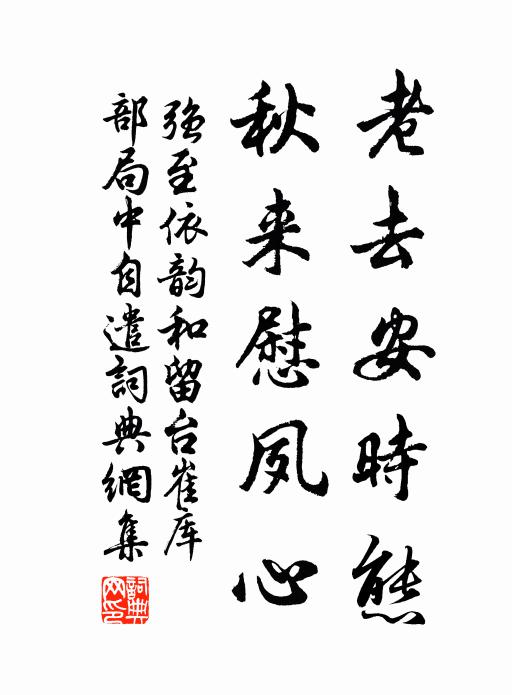 老去安時態
秋来慰夙心
強至依韵和留台崔库
部局中自遣詞典網集
詞典
网印